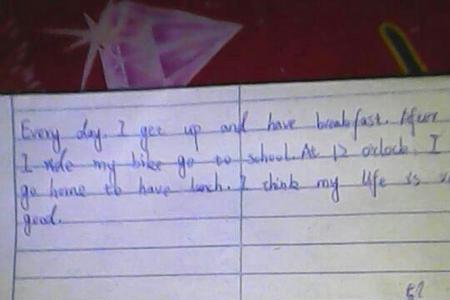 Every day. I get up and have breakfast. After
I ride my bike go to school. At 12 o'clock. I
go home to have lunch. I think my life is
good.